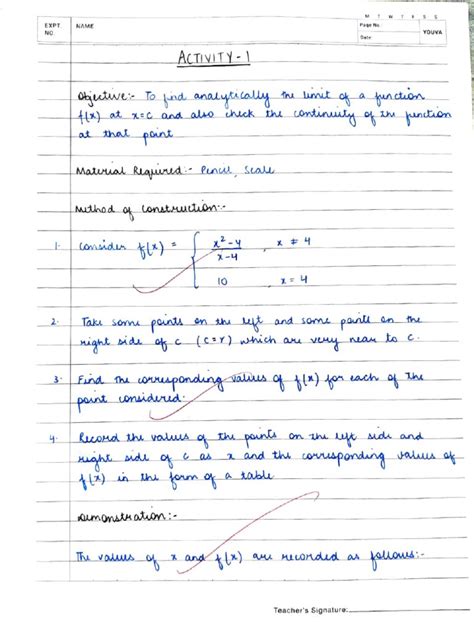 M T W T F S S
EXPT. NO.
NAME
Page No.
Date
YOUVA
ACTIVITY-1
Objective:- To find analytically the limit of a function
f(x) at x=c and also check the continuity of the function
at that point
Material Required:- Pencil, Scale
Method of Construction:-
1. Consider f(x) = { x²-4 / x-4 , x ≠ 4
10 , x = 4
2. Take some points on the left and some points on the
right side of c (c=Y) which are very near to c.
3. Find the corresponding values of f(x) for each of the
point considered.
4. Record the values of the points on the left side and
right side of c as x and the corresponding values of
f(x) in the form of a table
Demonstration:-
The values of x and f(x) are recorded as follows:-
Teacher's Signature: